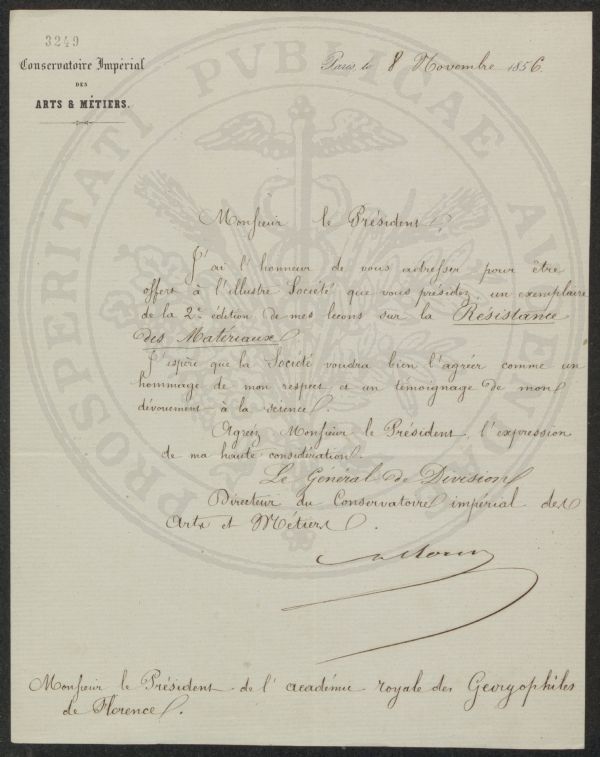 3249
Conservatoire Impérial
DES
ARTS & MÉTIERS.
Paris, le 8 Novembre 1856.
PROSPERITATI PVBLICAE AVGENDAE
Monsieur le Président,
J'ai l'honneur de vous adresser pour être
offert à l'illustre Société que vous présidez, un exemplaire
de la 2e édition de mes leçons sur la Résistance
des Matériaux.
J'espère que la Société voudra bien l'agréer comme un
hommage de mon respect et un témoignage de mon
dévouement à la science.
Agréez Monsieur le Président, l'expression
de ma haute considération.
Le Général de Division
Directeur du Conservatoire impérial des
Arts et Métiers.
A Morin
Monsieur le Président de l'académie royale des Georgophiles
de Florence.